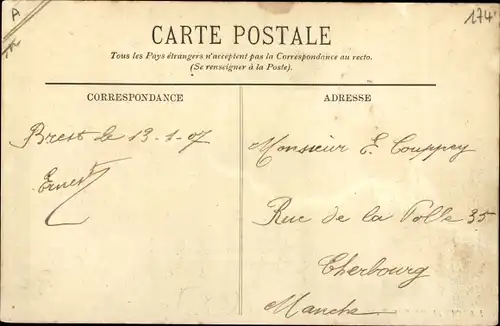 A
174
CARTE POSTALE
Tous les Pays étrangers n'acceptent pas la Correspondance au recto.
(Se renseigner à la Poste).
CORRESPONDANCE
ADRESSE
Brest le 13-1-07
Ernest
Monsieur E. Couppey
Rue de la Polle 35
Cherbourg
Manche